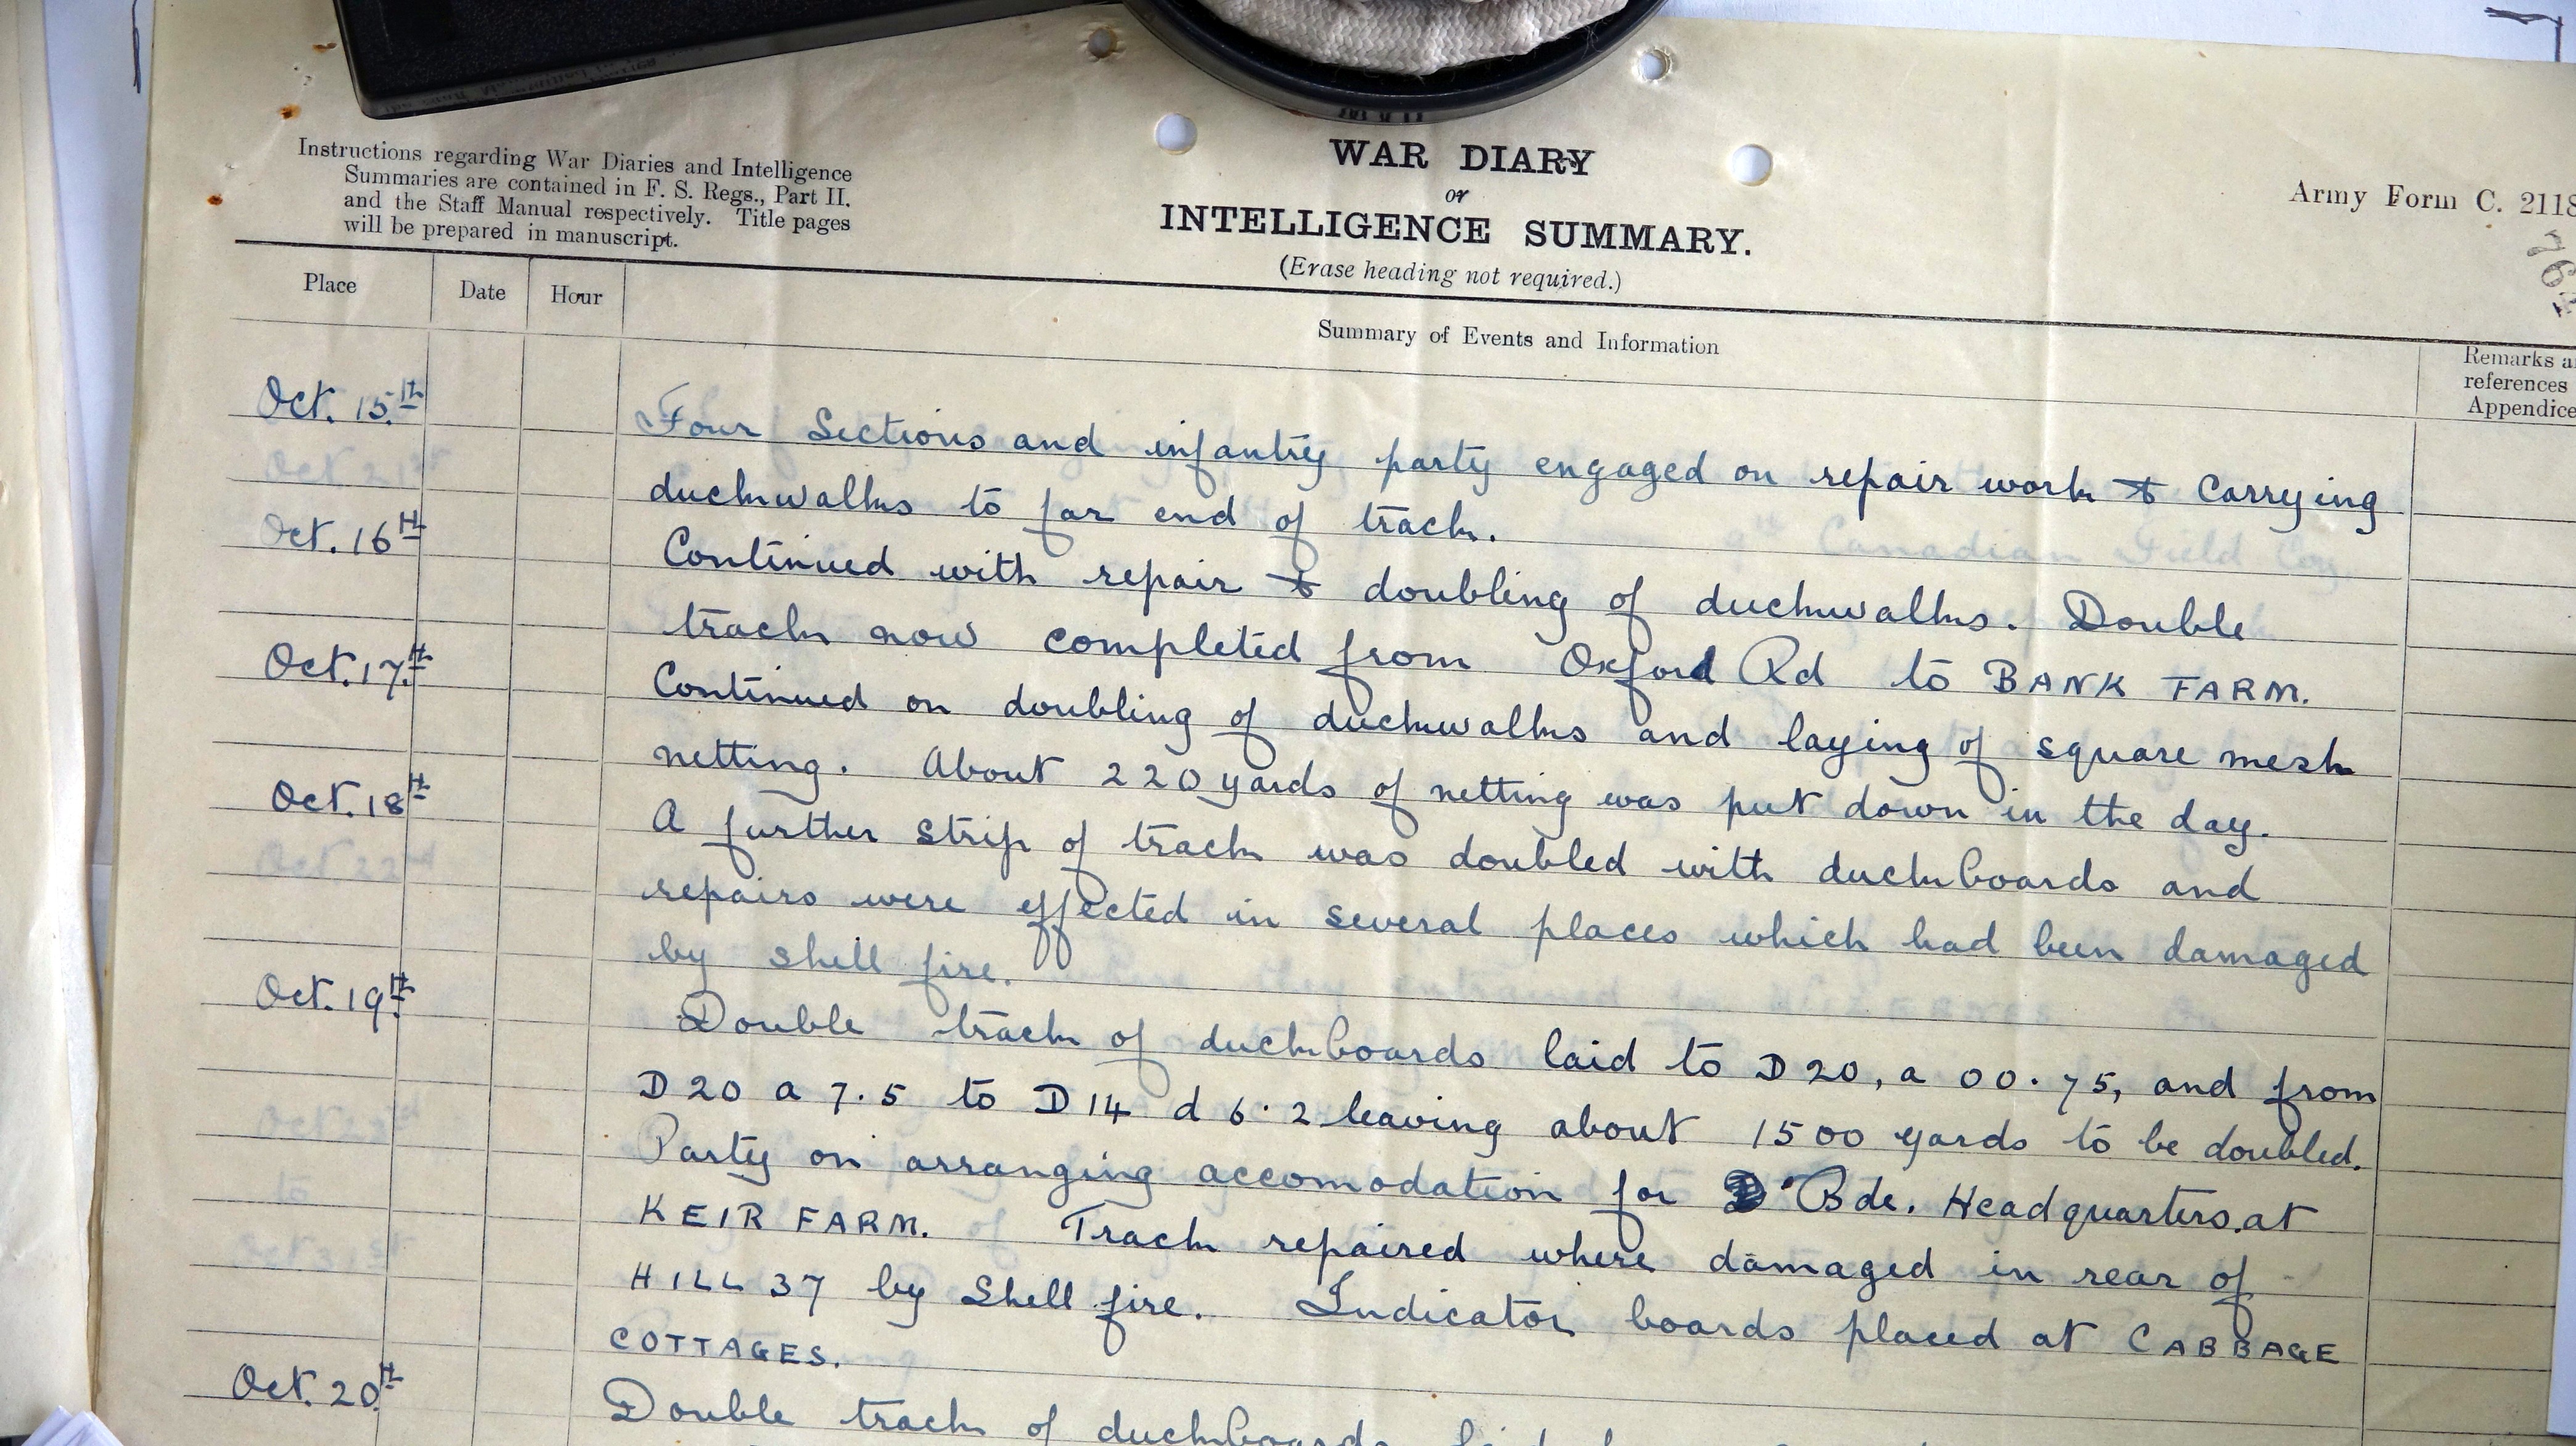 Instructions regarding War Diaries and Intelligence
Summaries are contained in F. S. Regs., Part II.
and the Staff Manual respectively. Title pages
will be prepared in manuscript.
WAR DIARY
or
INTELLIGENCE SUMMARY.
(Erase heading not required.)
Army Form C. 2118
Place Date Hour
Summary of Events and Information
Remarks a
references
Appendice
Oct. 15th
Four Sections and infantry party engaged on repair work & Carrying
duckwalks to far end of track.
Oct. 16th
Continued with repair & doubling of duckwalks. Double
track now completed from Oxford Rd to BANK FARM.
Oct. 17th
Continued on doubling of duckwalks and laying of square mesh
netting. About 220 yards of netting was put down in the day.
Oct. 18th
A further strip of track was doubled with duckboards and
repairs were effected in several places which had been damaged
by shell fire.
Oct. 19th
Double track of duckboards laid to D 20, a 00.75, and from
D 20 a 7.5 to D 14 d 6.2 leaving about 1500 yards to be doubled.
Party on arranging accomodation for Bde. Headquarters. at
KEIR FARM. Track repaired where damaged in rear of
HILL 37 by Shell fire. Indicator boards placed at CABBAGE
COTTAGES.
Oct. 20th
Double track of duckboards